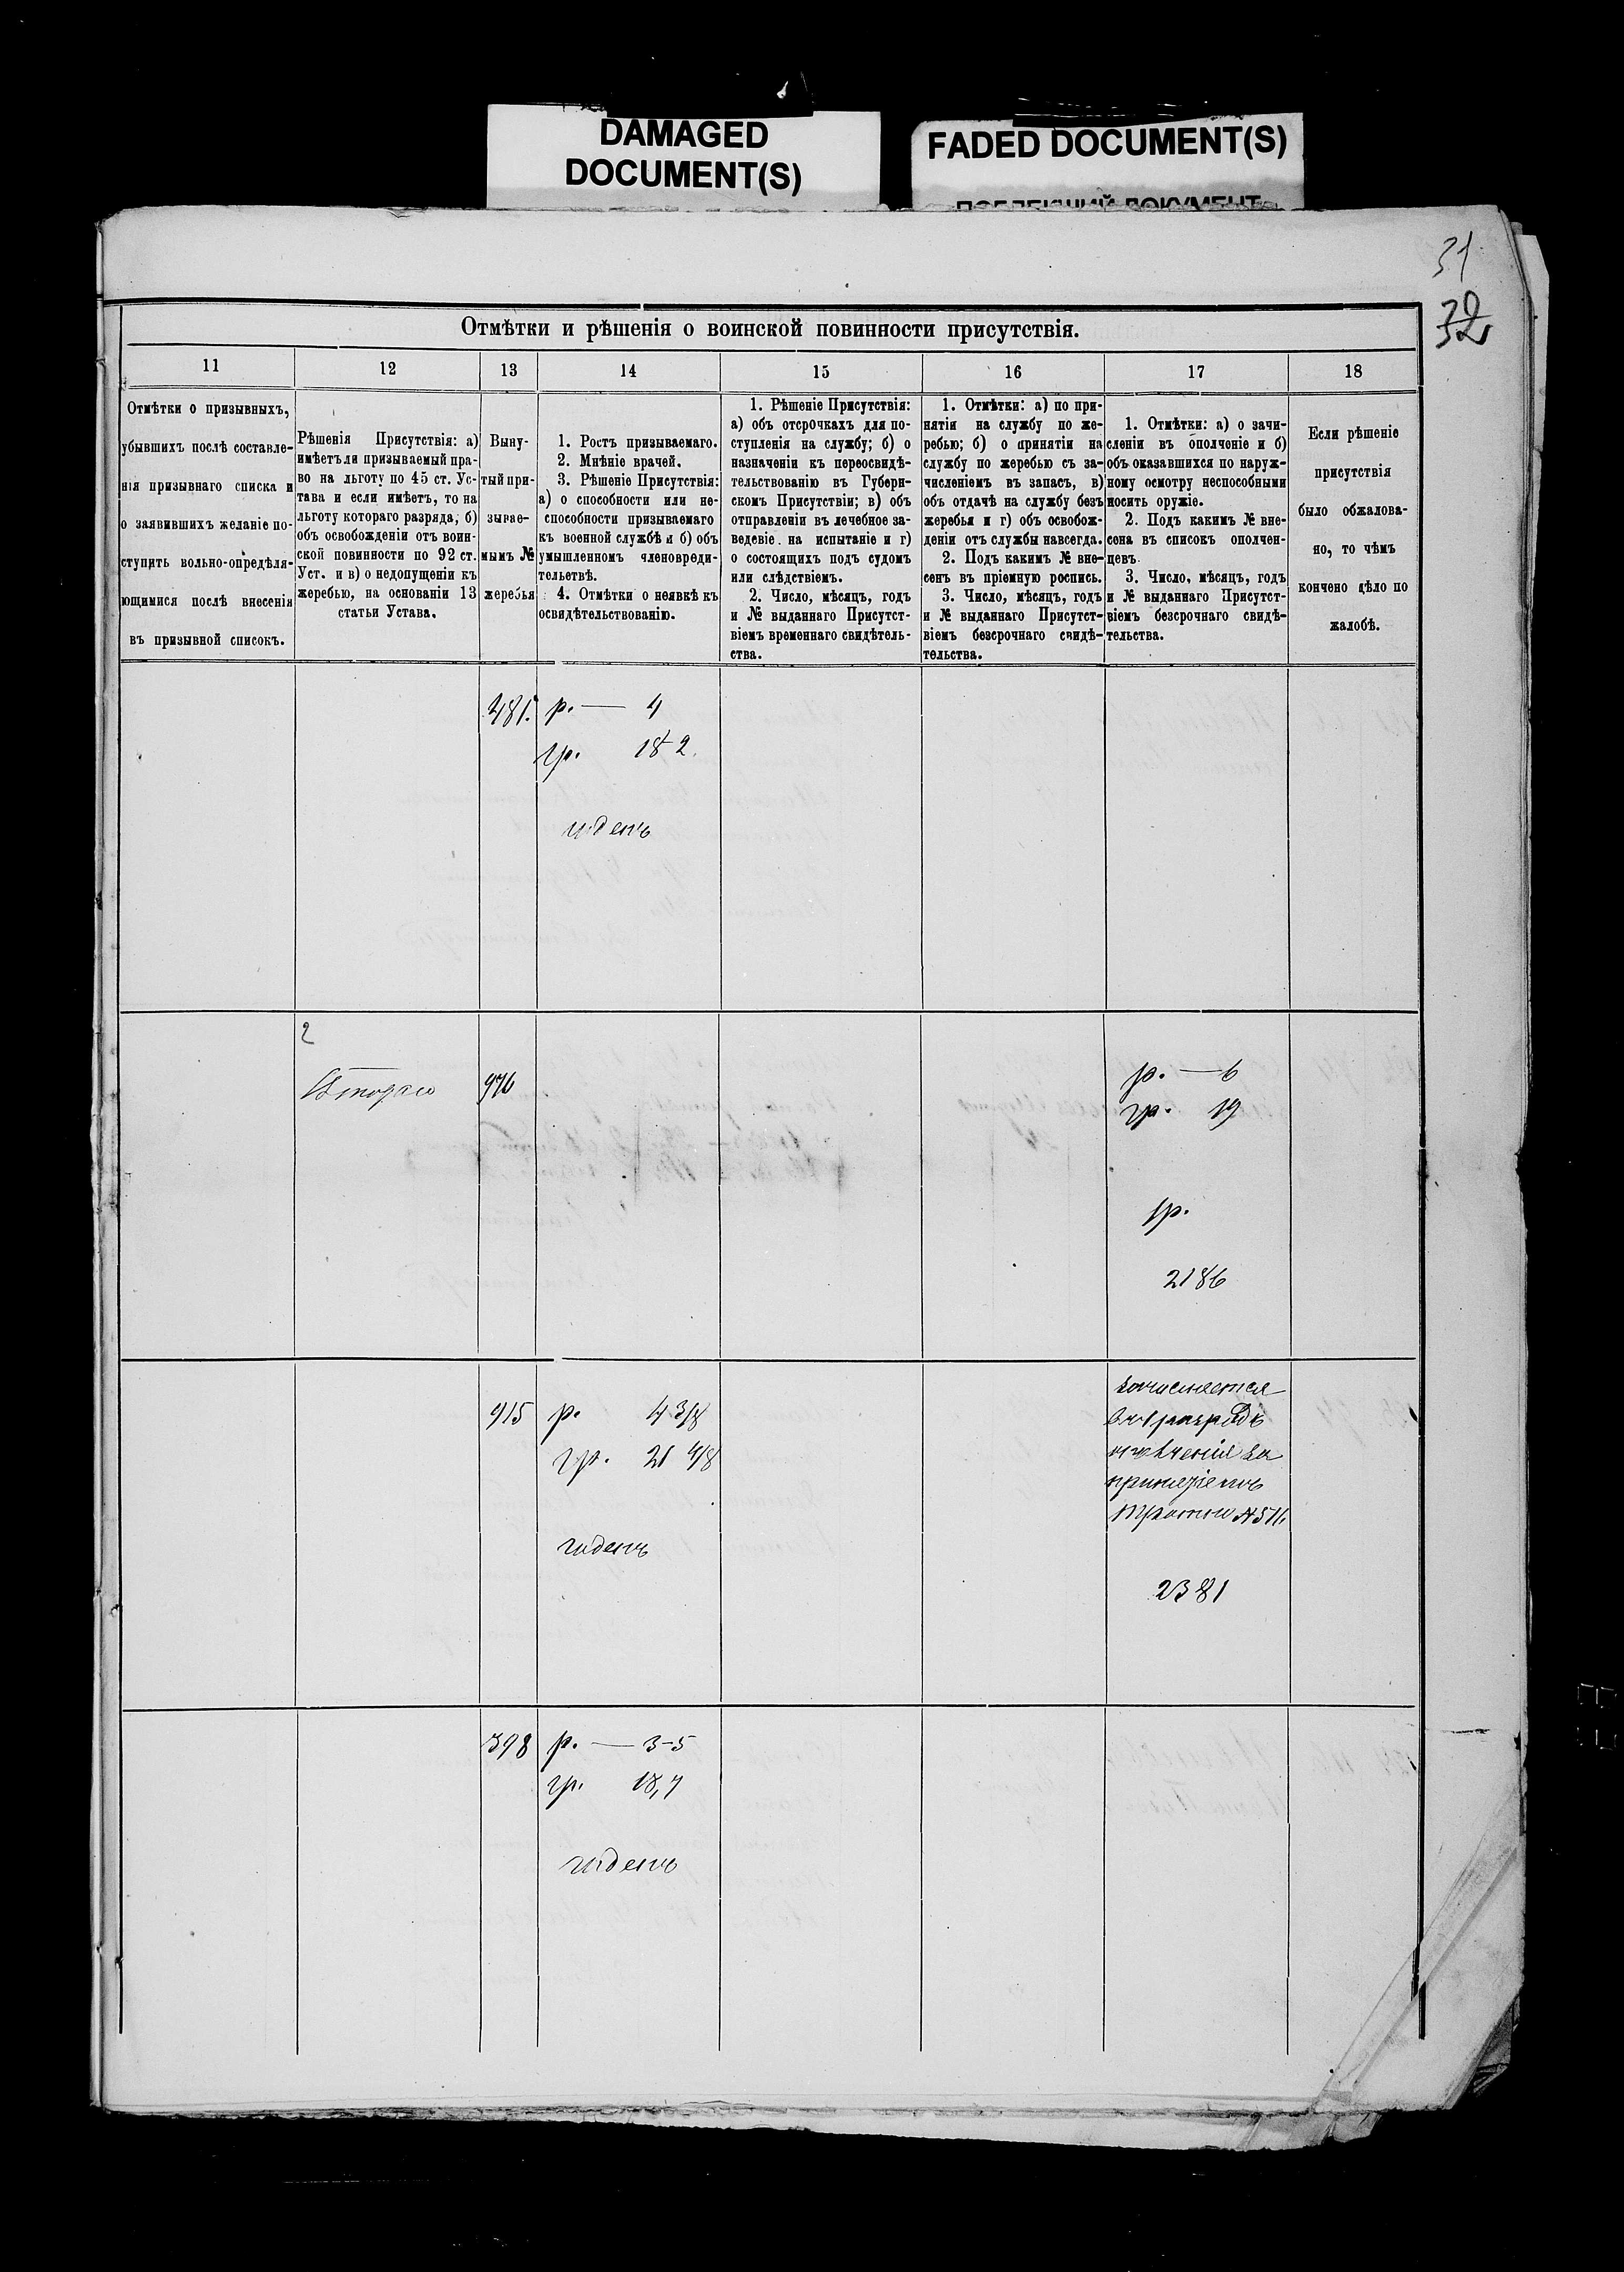 DAMAGED
DOCUMENT(S)
FADED DOCUMENT(S)
ПОБЛЕКШИЙ ДОКУМЕНТ
31
32
Отмѣтки и рѣшенія о воинской повинности присутствія.
11
12
13
14
15
16
17
18
Отмѣтки о призывныхъ,
убывшихъ послѣ составле-
нія призывнаго списка и
о заявившихъ желаніе по-
ступить вольно-опредѣля-
ющимися послѣ внесенія
въ призывной списокъ.
Рѣшенія Присутствія: а)
имѣетъ ли призываемый пра-
во на льготу по 45 ст. Ус-
тава и если имѣетъ, то на
льготу котораго разряда, б)
объ освобожденіи отъ воин-
ской повинности по 92 ст.
Уст. и в) о недопущеніи къ
жеребью, на основаніи 13
статьи Устава.
Выну-
тый при-
зывае-
мымъ №
жеребья
1. Ростъ призываемаго.
2. Мнѣніе врачей.
3. Рѣшеніе Присутствія:
а) о способности или не-
способности призываемаго
къ военной службѣ и б) объ
умышленномъ членовреди-
тельетвѣ.
4. Отмѣтки о неявкѣ къ
освидѣтельствованію.
1. Рѣшеніе Присутствія:
а) объ отсрочкахъ для по-
ступленія на службу; б) о
назначеніи къ переосвидѣ-
тельствованію въ Губерн-
скомъ Присутствіи; в) объ
отправленіи въ лечебное за-
веденіе на испытаніе и г)
о состоящихъ подъ судомъ
или слѣдствіемъ.
2. Число, мѣсяцъ, годъ
и № выданнаго Присутст-
віемъ временнаго свидѣтель-
ства.
1. Отмѣтки: а) по при-
нятіи на службу по же-
ребью; б) о принятіи на
службу по жеребью съ за-
численіемъ въ запасъ, в)
объ отдачѣ на службу безъ
жеребья и г) объ освобож-
деніи отъ службы навсегда.
2. Подъ какимъ № вне-
сенъ въ пріемную роспись.
3. Число, мѣсяцъ, годъ
и № выданнаго Присутст-
віемъ безсрочнаго свидѣ-
тельства.
1. Отмѣтки: а) о зачи-
сленіи въ ополченіе и б)
объ оказавшихся по наруж-
ному осмотру неспособными
носить оружіе.
2. Подъ какимъ № вне-
сена въ списокъ ополчен-
цевъ.
3. Число, мѣсяцъ, годъ
и № выданнаго Присутст-
віемъ безсрочнаго свидѣ-
тельства.
Если рѣшеніе
присутствія
было обжалова-
но, то чѣмъ
кончено дѣло по
жалобѣ.
481. р. — 4
гр. 18 2.
годенъ
2
Втораго 976 р. — 6
гр. 19
гр.
2186
915 р. 4 3/8
гр. 21 4/8
годенъ
Зачисляется
въ 1 разрядъ
ополченія за
2381
398 р. — 3-5
гр. 18,7
годенъ